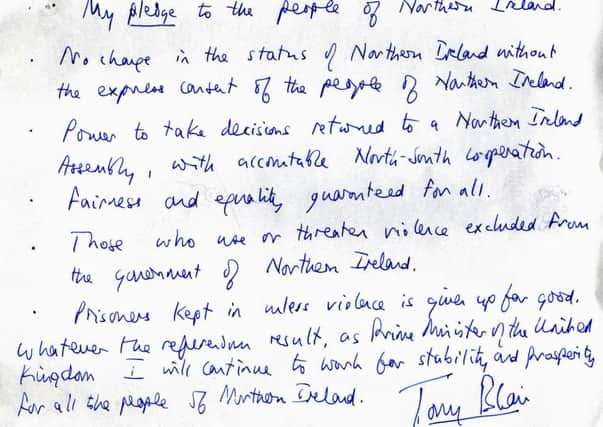 My pledge to the people of Northern Ireland.
· No change in the status of Northern Ireland without
the express consent of the people of Northern Ireland.
· Power to take decisions returned to a Northern Ireland
Assembly, with accountable North-South co-operation.
· Fairness and equality guaranteed for all.
· Those who use or threaten violence excluded from
the government of Northern Ireland.
· Prisoners kept in unless violence is given up for good.
Whatever the referendum result, as Prime Minister of the United
Kingdom I will continue to work for stability and prosperity
for all the people of Northern Ireland.
Tony Blair